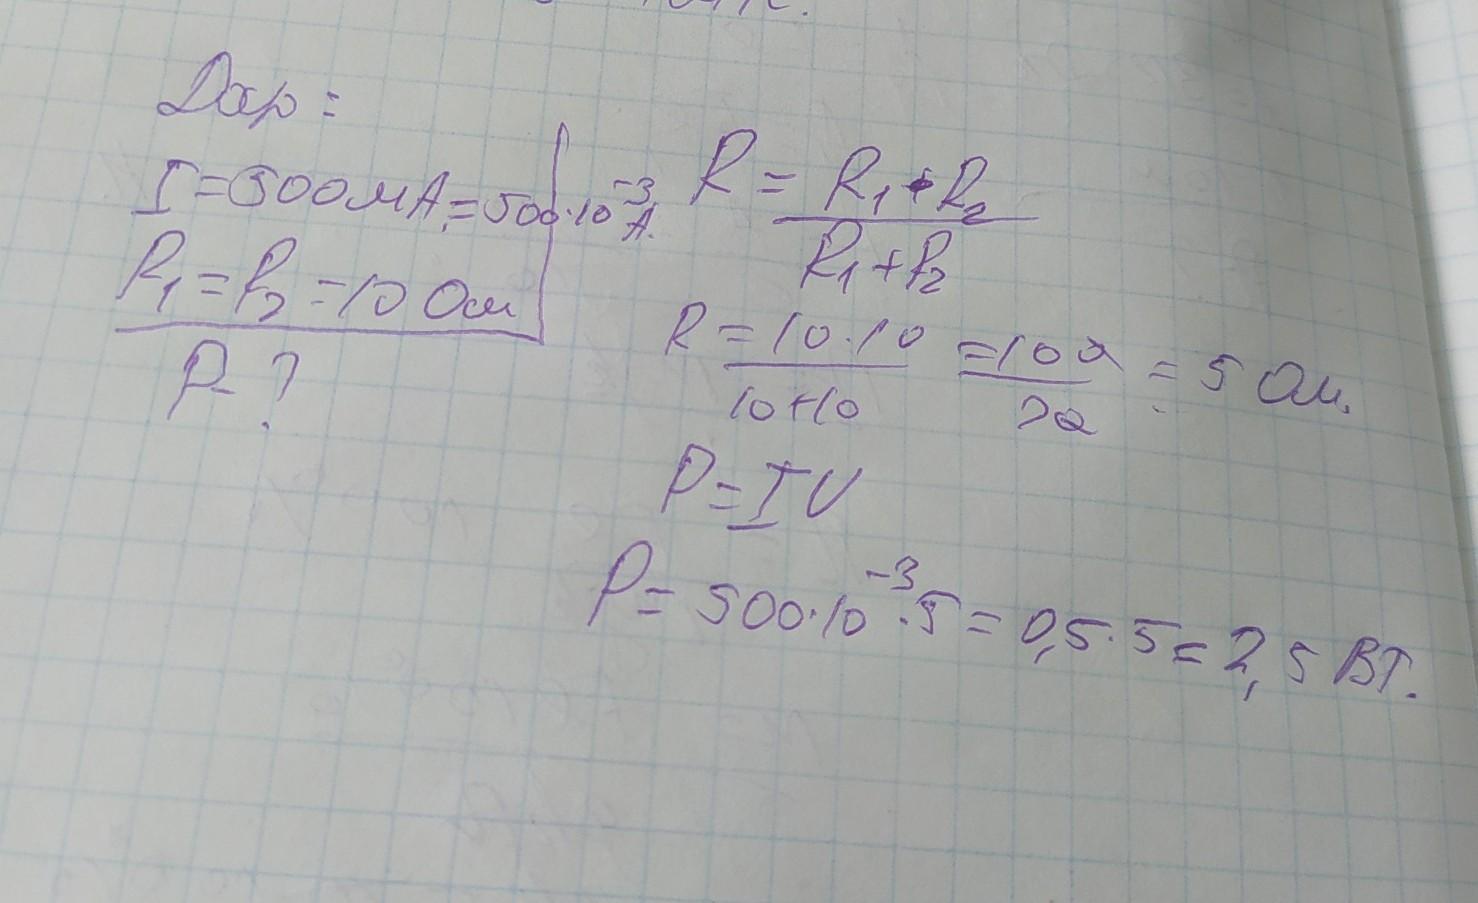 Дар:
I = 500мА = 500·10⁻³ А.
R₁ = R₂ = 10 Ом
P - ?
R = R₁·R₂ / R₁+R₂
R = 10·10 / 10+10 = 100 / 20 = 5 Ом.
P = IU
P = 500·10⁻³·5 = 0,5·5 = 2,5 Вт.